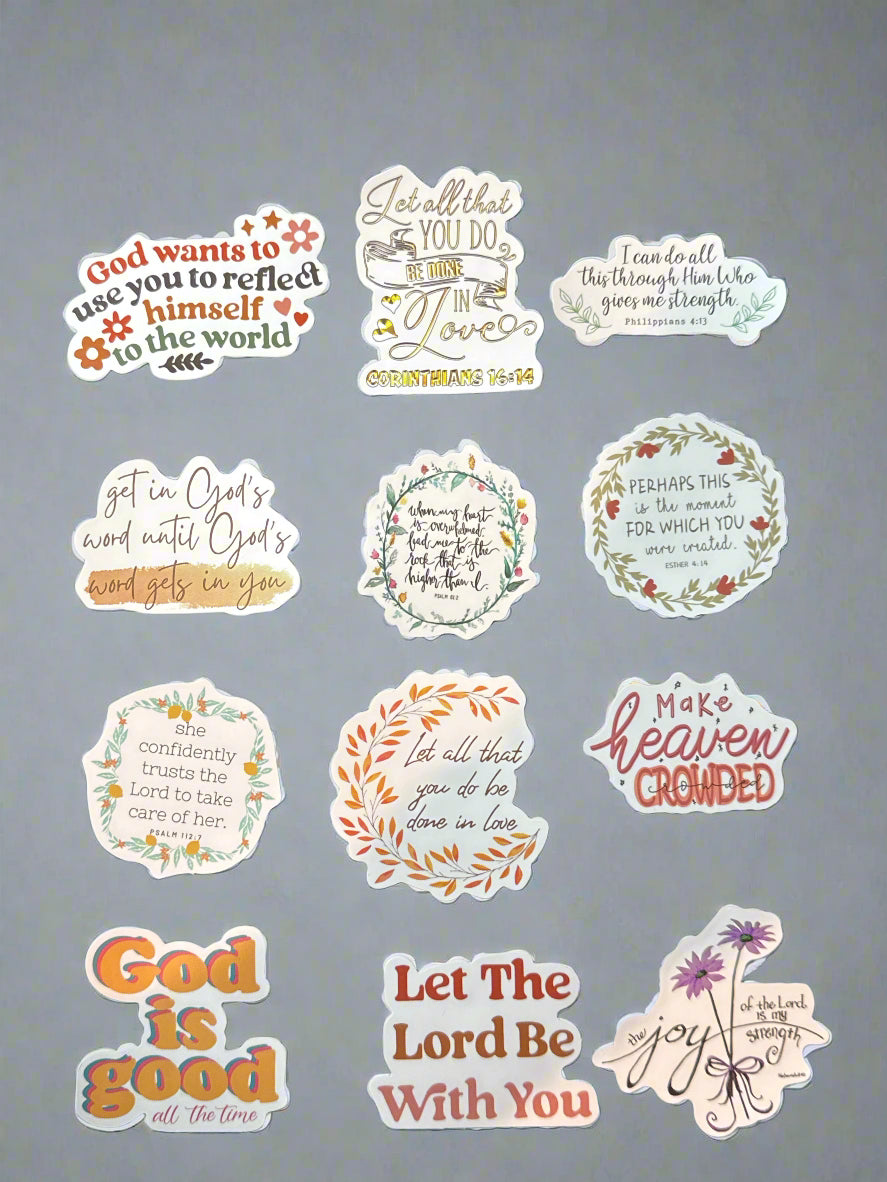 God wants to
use you to reflect
himself
to the world
Let all that
YOU DO
BE DONE
IN
Love
CORINTHIANS 16:14
I can do all
this through Him Who
gives me strength.
Philippians 4:13
get in God's
word until God's
word gets in you
when my heart
is overwhelmed
lead me to the
rock that is
higher than I.
PSALM 61:2
PERHAPS THIS
is the moment
FOR WHICH YOU
were created.
ESTHER 4:14
she
confidently
trusts the
Lord to take
care of her.
PSALM 112:7
Let all that
you do be
done in love
Make
heaven
CROWDED
crowded
God
is
good
all the time
Let The
Lord Be
With You
the joy
of the Lord
is my
strength